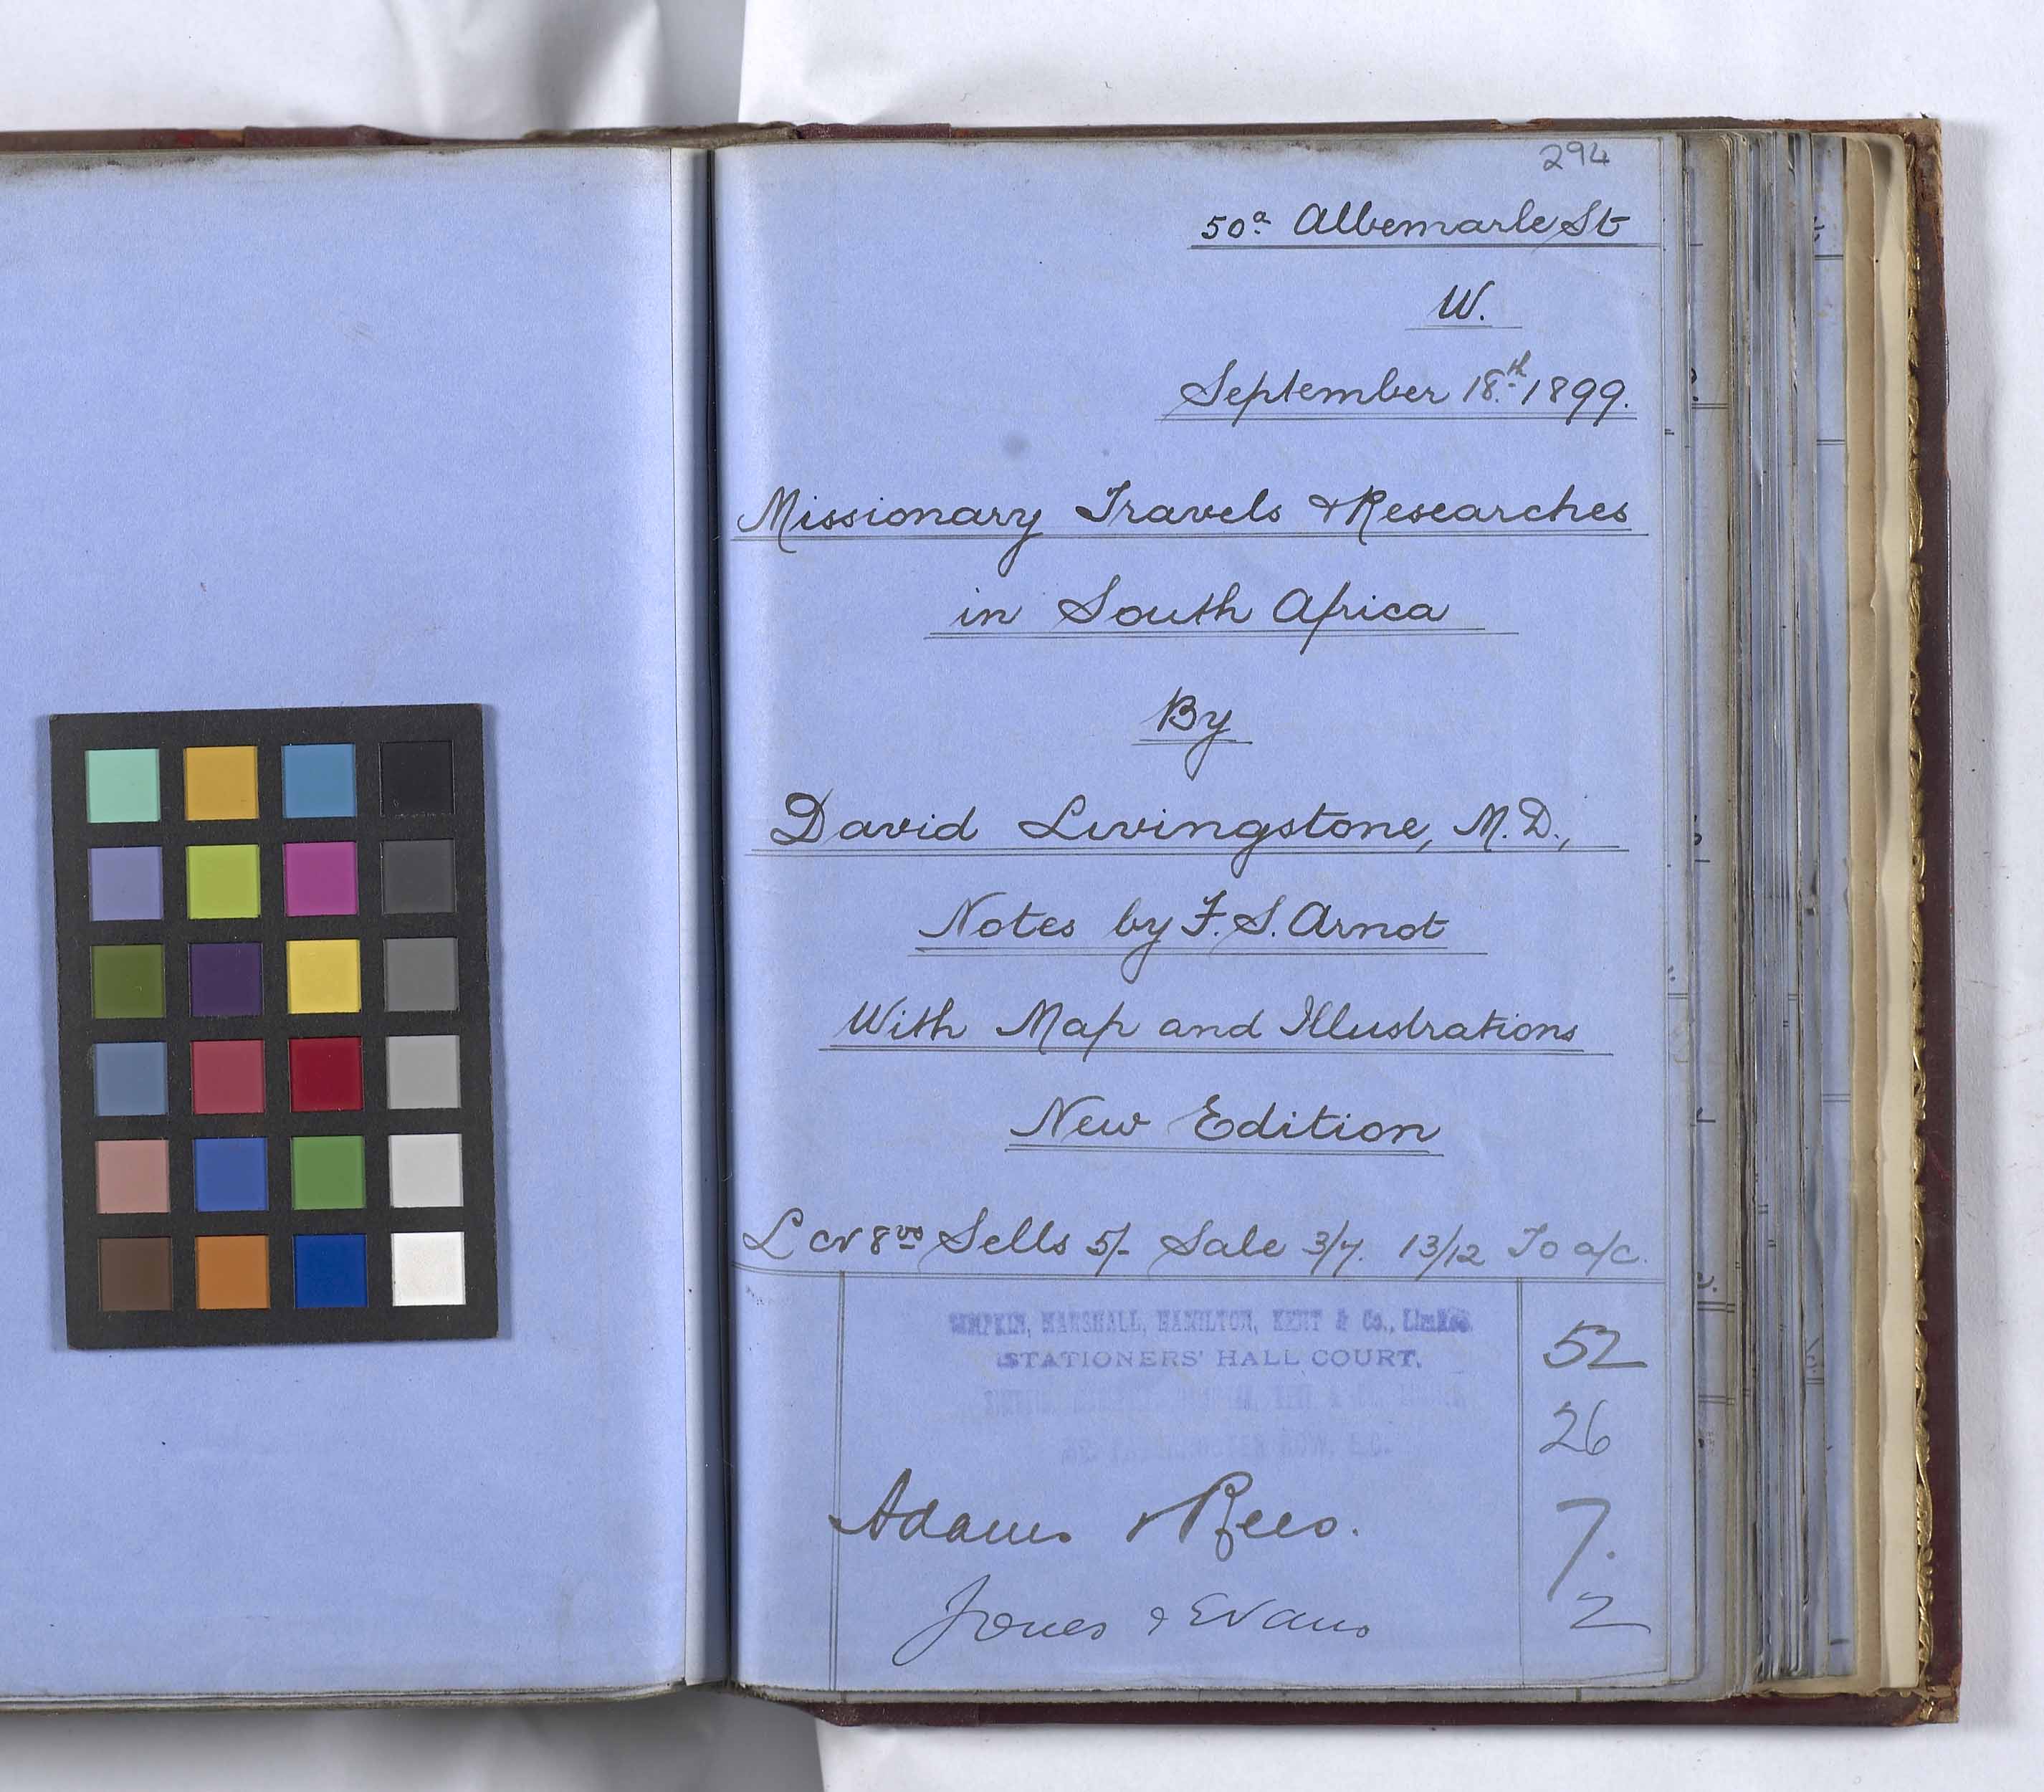 294
50a Albemarle St
W.
September 18th 1899.
Missionary Travels & Researches
in South Africa
By
David Livingstone, M.D.,
Notes by F. S. Arnot
With Map and Illustrations
New Edition
L cr 8vo Sells 5/- Sale 3/7. 13/12 To a/c.
SIMPKIN, MARSHALL, HAMILTON, KENT & Co., Limited
STATIONERS' HALL COURT. 52
26
Adams & Rees. 7.
Jones & Evans 2